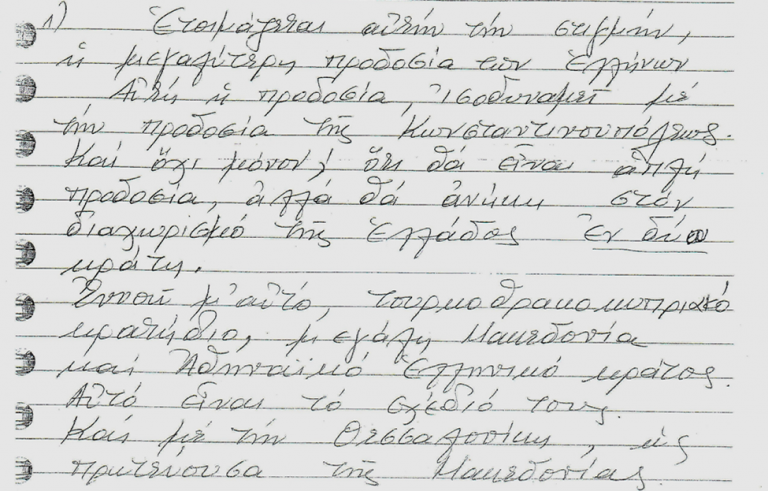 1) Ἑτοιμάζεται αὐτὴν τὴν στιγμήν,
ἡ μεγαλύτερη προδοσία τῶν Ἑλλήνων
Αὐτὴ ἡ προδοσία, ἰσοδυναμεῖ μέ
τὴν προδοσία τῆς Κωνσταντινουπόλεως.
Καί ὄχι μόνον, ὅτι θά εἶναι ἁπλή
προδοσία, ἀλλά θά ἀνήκη στόν
διαχωρισμό τῆς Ἑλλάδος ἐν δύο
κράτη.
Ἐννοῶ μ' αὐτό, τουρκοθρακοκυπριακό
κρατήδιο, μεγάλη Μακεδονία
καί Ἀθηναϊκό Ἑλληνικό κράτος.
Αὐτό εἶναι τό σχέδιό τους.
Καί μέ τήν Θεσσαλονίκη, ὡς
πρωτεύουσα τῆς Μακεδονίας.